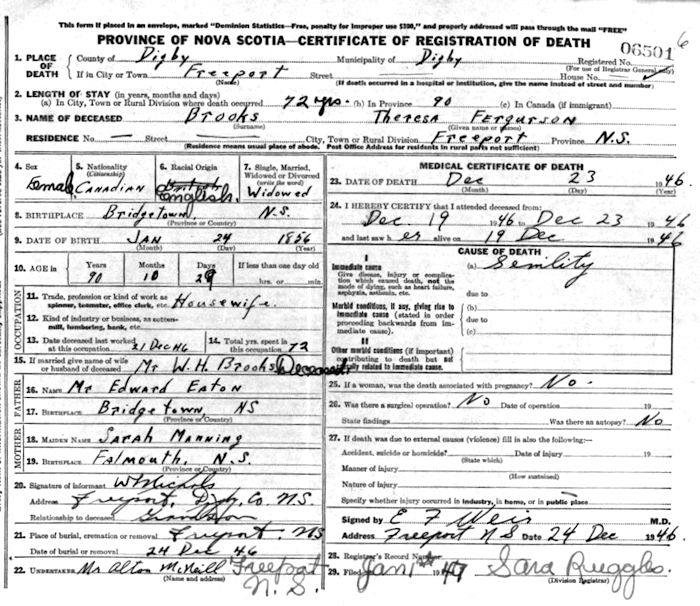 This form if placed in an envelope, marked "Dominion Statistics—Free, penalty for improper use $300," and properly addressed will pass through the mail "FREE"
PROVINCE OF NOVA SCOTIA—CERTIFICATE OF REGISTRATION OF DEATH
06501 6
1. PLACE OF DEATH County of Digby Municipality of Digby Registered No.
(For use of Registrar General only)
If in City or Town Freeport Street House No.
(Name) (If death occurred in a hospital or institution, give the name instead of street and number)
2. LENGTH OF STAY (in years, months and days)
(a) In City, Town or Rural Division where death occurred 72 yrs. (b) In Province 90 (c) In Canada (if immigrant)
3. NAME OF DECEASED Brooks Theresa Ferguson
(Surname) (Given name or names)
RESIDENCE No. — Street — City, Town or Rural Division Freeport Province N.S.
(Residence means usual place of abode. Post Office Address for residents in rural parts not sufficient)
4. Sex Female
5. Nationality (Citizenship) Canadian
6. Racial Origin British English
7. Single, Married, Widowed or Divorced (write the word) Widowed
8. BIRTHPLACE Bridgetown, N.S.
(Province or Country)
9. DATE OF BIRTH Jan 24 1856
(Month) (Day) (Year)
10. AGE in Years 90 Months 10 Days 29 If less than one day old hrs. or min.
OCCUPATION
11. Trade, profession or kind of work as spinner, teamster, office clerk, etc. Housewife.
12. Kind of industry or business, as cotton-mill, lumbering, bank, etc.
13. Date deceased last worked at this occupation 21 Dec 46 14. Total yrs. spent in this occupation 72
15. If married give name of wife or husband of deceased Mr W. H. Brooks Deceased
FATHER
16. NAME Mr Edward Eaton
17. BIRTHPLACE Bridgetown, NS
(Province or Country)
MOTHER
18. MAIDEN NAME Sarah Manning
19. BIRTHPLACE Falmouth, N.S.
(Province or Country)
20. Signature of informant W Nichols
Address Freeport, Digby Co. N.S.
Relationship to deceased Grandson
21. Place of burial, cremation or removal Freeport. NS
Date of burial or removal 24 Dec 46
22. UNDERTAKER Mr Alton McNeill Freeport N.S.
(Name and address)
MEDICAL CERTIFICATE OF DEATH
23. DATE OF DEATH Dec 23 1946.
(Month) (Day) (Year)
24. I HEREBY CERTIFY that I attended deceased from:
Dec. 19 1946 to Dec 23 1946
and last saw h er alive on 19 Dec 1946
CAUSE OF DEATH
I
Immediate cause (a) Senility
Give disease, injury or complication which caused death, not the mode of dying, such as heart failure, asphyxia, asthenia, etc.
due to
Morbid conditions, if any, giving rise to immediate cause (stated in order proceeding backwards from immediate cause). (b)
due to
(c)
II
Other morbid conditions (if important) contributing to death but not causally related to immediate cause.
25. If a woman, was the death associated with pregnancy? No.
26. Was there a surgical operation? No Date of operation 19
State findings Was there an autopsy? No
27. If death was due to external causes (violence) fill in also the following:—
Accident, suicide or homicide? Date of injury 19
(State which)
Manner of injury
(How sustained)
Nature of injury
Specify whether injury occurred in industry, in home, or in public place
Signed by E F Weir M.D.
Address Freeport N S Date 24 Dec 1946.
28. Registrar's Record Number
29. Filed Jan 1st 1947 Sara Ruggles
(Division Registrar)